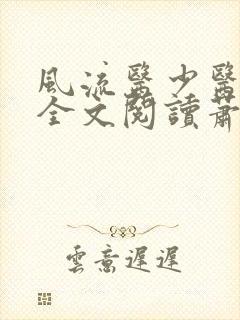 風流醫少醫
全文閱讀蕭
雲意遲遲